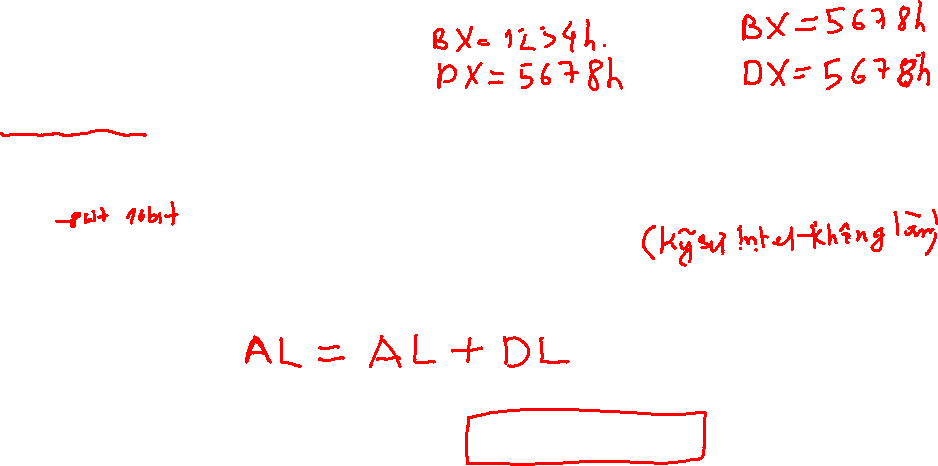 BX=1234h.
DX=5678h
BX=5678h
DX=5678h
8bit 16bit
(Kỹ sư Intel không làm)
AL = AL + DL